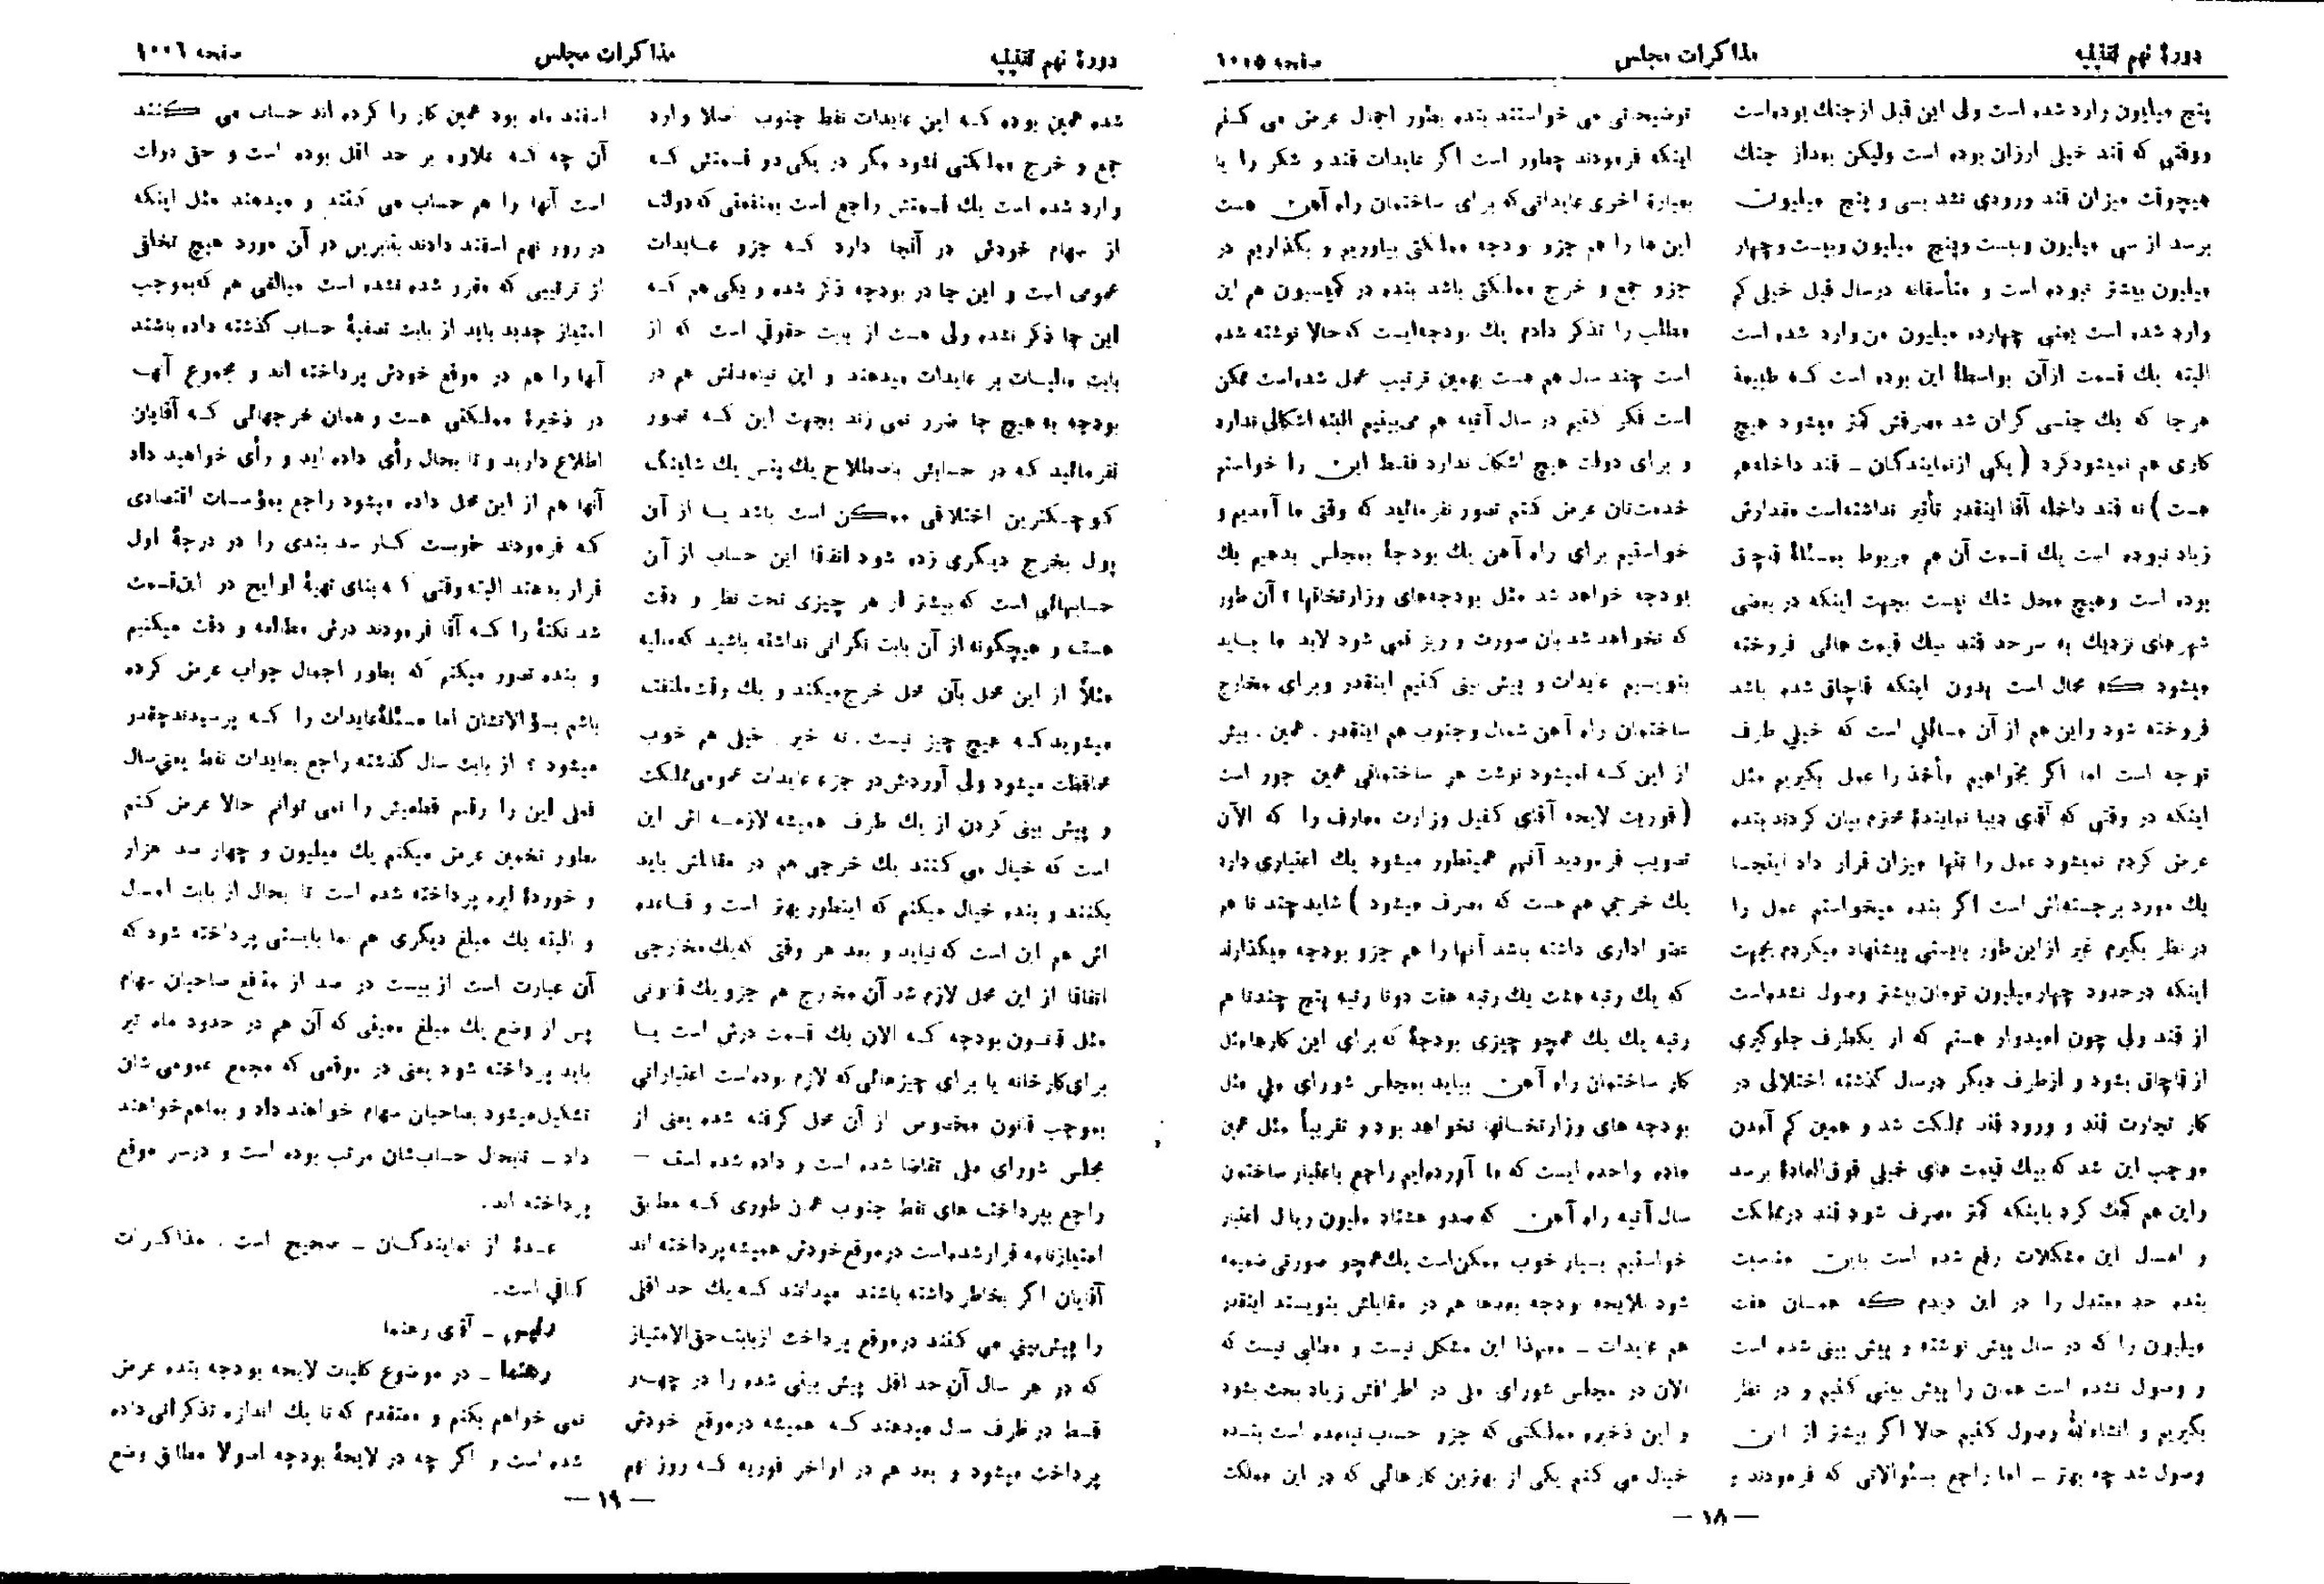 دورهٔ نهم تقنینیه
مذاکرات مجلس
صفحه ۱۰۰۵
پنج میلیون وارد شده است ولی این قبل از جنك بوده‌است
ووقتی که قند خیلی ارزان بوده است ولیکن بعداز جنك
هیچوقت میزان قند ورودی نشد بسی و پنج میلیون
برسد از سی میلیون وبیست وپنج میلیون وبیست وچهار
میلیون بیشتر نبوده است و متأسفانه درسال قبل خیلی کم
وارد شده است یعنی چهارده میلیون من وارد شده است
البته یك قسمت ازآن بواسطهٔ این بوده است که طبیعة
هرجا که یك جنسی گران شد مصرفش کمتر میشود هیچ
کاری هم نمیشودکرد ( یکی ازنمایندگان ـ قند داخله‌هم
هست ) نه قند داخله آقا اینقدر تأثیر نداشته‌است مقدارش
زیاد نبوده است یك قسمت آن هم مربوط بمسئلهٔ قاچاق
بوده است وهیچ محل شك نیست بجهت اینکه در بعضی
شهرهای نزدیك به سرحد قند بیك قیمت هائی فروخته
میشود که محال است بدون اینکه قاچاق شده باشد
فروخته شود واین هم از آن مسائلی است که خیلی طرف
توجه است اما اگر بخواهیم مأخذ را عمل بگیریم مثل
اینکه در وقتی که آقای دیبا نمایندهٔ محترم بیان کردند بنده
عرض کردم نمیشود عمل را تنها میزان قرار داد اینجا
یك مورد برجسته‌ائی است اگر بنده میخواستم عمل را
درنظر بگیرم غیر ازاین طور بایستی پیشنهاد میکردم بجهت
اینکه درحدود چهارمیلیون تومان بیشتر وصول نشده‌است
از قند ولی چون امیدوار هستم که از یکطرف جلوگیری
از قاچاق بشود و ازطرف دیگر درسال گذشته اختلالی در
کار تجارت قند و ورود قند مملکت شد و همین کم آمدن
موجب این شد که بیك قیمت های خیلی فوق‌العادهٔ برسد
واین هم کمك کرد باینکه کمتر مصرف شود قند درمملکت
و امسال این مشکلات رفع شده است باین مناسبت
بنده حد معتدل را در این دیدم که همان هفت
میلیون را که در سال پیش نوشته و پیش بینی شده است
و وصول نشده است همان را پیش بینی کنیم و در نظر
بگیریم و انشاءالله وصول کنیم حالا اگر بیشتر از این
وصول شد چه بهتر ـ اما راجع بسئوالاتی که فرمودند و
توضیحاتی می خواستند بنده بطور اجمال عرض می کنم
اینکه فرمودند چطور است اگر عایدات قند و شکر را یا
بعبارة اخری عایداتی که برای ساختمان راه آهن هست
این ها را هم جزو بودجه مملکتی بیاوریم و بگذاریم در
جزو جمع و خرج مملکتی باشد بنده در کمیسیون هم این
مطلب را تذکر دادم یك بودجه‌ایست که حالا نوشته شده
است چند سال هم هست بهمین ترتیب عمل شده‌است ممکن
است فکر کنیم در سال آتیه هم می‌بینیم البته اشکالی ندارد
و برای دولت هیچ اشکال ندارد فقط این را خواستم
خدمت‌تان عرض کنم تصور نفرمائید که وقتی ما آمدیم و
خواستیم برای راه آهن یك بودجهٔ بمجلس بدهیم یك
بودجه خواهد شد مثل بودجه‌های وزارتخانها ؟ آن طور
که نخواهد شد بان صورت و ریز نمی شود لابد ما باید
بنویسیم عایدات و پیش بینی کنیم اینقدر وبرای مخارج
ساختمان راه آهن شمال وجنوب هم اینقدر . همین . بیش
از این که نمیشود نوشت هر ساختمانی همین جور است
( فوریت لایحه آقای کفیل وزارت معارف را که الآن
تصویب فرمودید آنهم همینطور میشود یك اعتباری دارد
یك خرجی هم هست که مصرف میشود ) شاید چند تا هم
عضو اداری داشته باشد آنها را هم جزو بودجه میگذارند
که یك رتبه هشت یك رتبه هفت دوتا رتبه پنج چندتا هم
رتبه یك یك همچو چیزی بودجهٔ که برای این کارها مثل
کار ساختمان راه آهن بیاید بمجلس شورای ملی مثل
بودجه های وزارتخانها نخواهد بود و تقریباً مثل همین
ماده واحده ایست که ما آورده‌ایم راجع باعتبار ساختمان
سال آتیه راه آهن که صدو هشتاد ملیون ریال اعتبار
خواستیم بسیار خوب ممکن‌است یك همچو صورتی ضمیمه
شود بلایحه بودجه بعدها هم در مقابلش بنویسند اینقدر
هم عایدات ـ معهذا این مشکل نیست و مطالبی نیست که
الان در مجلس شورای ملی در اطرافش زیاد بحث بشود
و این ذخیره مملکتی که جزو حساب نیامده است بنده
خیال می کنم یکی از بهترین کارهائی که در این مملکت
— ۱۸ —
دورهٔ نهم تقنینیه
مذاکرات مجلس
صفحه ۱۰۰۶
شده همین بوده که این عایدات نفط جنوب اصلا وارد
جمع و خرج مملکتی نشود مگر در یکی دو قسمتش که
وارد شده است یك قسمتش راجع است بمنفعتی که دولت
از سهام خودش در آنجا دارد که جزو عایدات
عمومی است و این جا در بودجه ذکر شده و یکی هم که
این جا ذکر نشده ولی هست از بابت حقوقی است که از
بابت مالیات بر عایدات میدهند و این نیامدنش هم در
بودجه به هیچ جا ضرر نمی زند بجهت این که تصور
نفرمائید که در حسابش باصطلاح یك پنس یك شلینگ
کوچکترین اختلافی ممکن است باشد یا از آن
پول بخرج دیگری زده شود اتفاقا این حساب از آن
حسابهائی است که بیشتر از هر چیزی تحت نظر و دقت
هست و هیچگونه از آن بابت نگرانی نداشته باشید که مالیه
مثلاً از این محل بآن محل خرج میکند و یك وقت ملتفت
میشوید که هیچ چیز نیست . نه خیر . خیلی هم خوب
محافظت میشود ولی آوردنش در جزء عایدات عمومی مملکت
و پیش بینی کردن از یك طرف همیشه لازمه اش این
است که خیال می کنند یك خرجی هم در مقابلش باید
بکنند و بنده خیال میکنم که اینطور بهتر است و قاعده
اش هم این است که نیاید و بعد هر وقتی که یك مخارجی
اتفاقا از این محل لازم شد آن مخارج هم جزو یك قانونی
مثل قانون بودجه که الان یك قسمت درش است یا
برای کارخانه یا برای چیزهائی که لازم بوده‌است اعتباراتی
بموجب قانون مخصوص از آن محل گرفته شده یعنی از
مجلس شورای ملی تقاضا شده است و داده شده است —
راجع بپرداخت های نفط جنوب همان طوری که مطابق
امتیازنامه قرار شده‌است درموقع خودش همیشه پرداخته اند
آقایان اگر بخاطر داشته باشند میدانند که یك حد اقلی
را پیش‌بینی می کنند درموقع پرداخت ازبابت حق‌الامتیاز
که در هر سال آن حد اقل پیش بینی شده را در چهار
قسط در ظرف سال میدهند که همیشه درموقع خودش
پرداخت میشود و بعد هم در اواخر فوریه که روز نهم
اسفند ماه بود همین کار را کرده اند حساب می کنند
آن چه که علاوه بر حد اقل بوده است و حق دولت
است آنها را هم حساب می کنند و میدهند مثل اینکه
در روز نهم اسفند دادند بنابرین در آن مورد هیچ تخلفی
از ترتیبی که مقرر شده نشده است مبالغی هم که بموجب
امتیاز جدید باید از بابت تصفیهٔ حساب گذشته داده باشند
آنها را هم در موقع خودش پرداخته اند و مجموع آنها
در ذخیرهٔ مملکتی هست و همان خرجهائی که آقایان
اطلاع دارید و تا بحال رأی داده اید و رأی خواهید داد
آنها هم از این محل داده میشود راجع بمؤسسات اقتصادی
که فرمودند خوبست کار سد بندی را در درجهٔ اول
قرار بدهند البته وقتی که بنای تهیهٔ لوایح در این‌قسمت
شد نکتهٔ را که آقا فرمودند درش مطالعه و دقت میکنیم
و بنده تصور میکنم که بطور اجمال جواب عرض کرده
باشم بسؤالاتشان اما مسئلهٔ عایدات را که پرسیدند چقدر
میشود ؟ از بابت سال گذشته راجع بعایدات نفط یعنی سال
فعلی این را رقم قطعیش را نمی توانم حالا عرض کنم
بطور تخمین عرض میکنم یك میلیون و چهار صد هزار
و خوردهٔ لیره پرداخته شده است تا بحال از بابت امسال
و البته یك مبلغ دیگری هم بما بایستی پرداخته شود که
آن عبارت است از بیست در صد از منافع صاحبان سهام
پس از وضع یك مبلغ معینی که آن هم در حدود ماه تیر
باید پرداخته شود یعنی در موقعی که مجمع عمومی شان
تشکیل میشود بصاحبان سهام خواهند داد و بماهم خواهند
داد ـ تابحال حساب‌شان مرتب بوده است و درسر موقع
پرداخته اند.
عدهٔ از نمایندگان ـ صحیح است . مذاکرات
کافی است.
رئیس ـ آقای رهنما
رهنما ـ در موضوع کلیات لایحه بودجه بنده عرض
نمی خواهم بکنم و معتقدم که تا یك اندازه تذکراتی داده
شده است و اگر چه در لایحهٔ بودجه اصولا مطابق وضع
— ۱۹ —